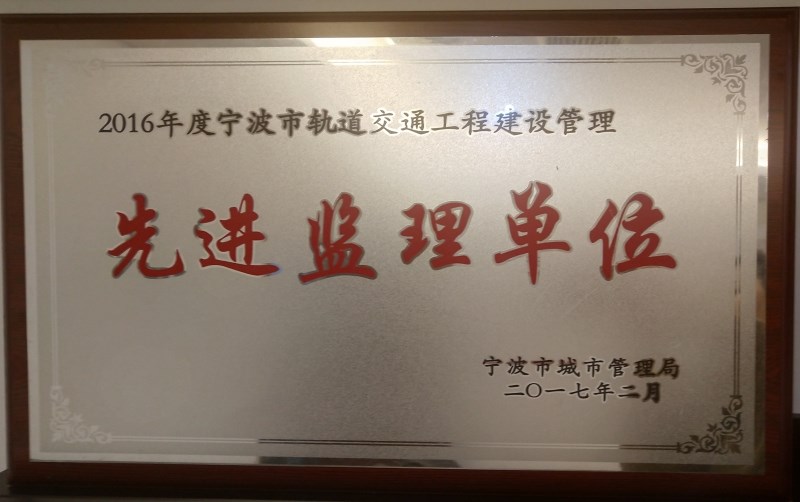 2016年度宁波市轨道交通工程建设管理
先进监理单位
宁波市城市管理局
二〇一七年二月